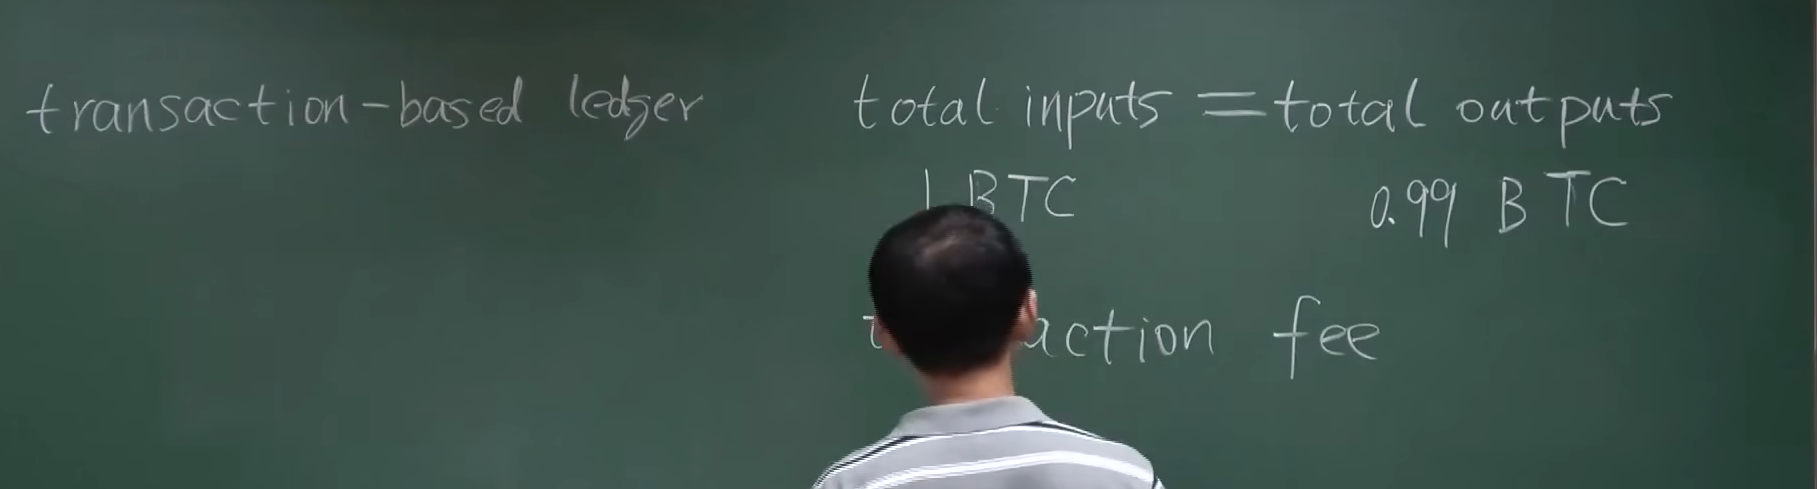 transaction-based ledger
total inputs = total outputs
1 BTC 0.99 BTC
fee